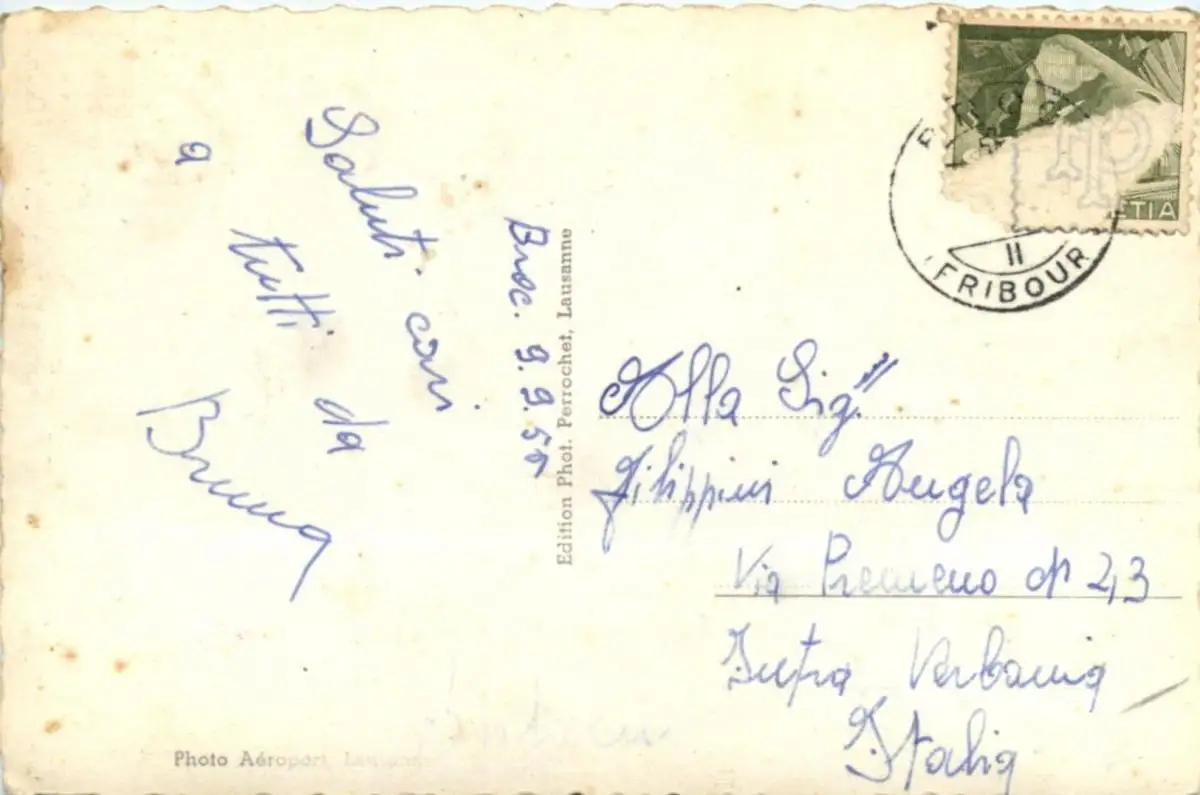 Saluti cari
a tutti da
Bruna
Broc. 9.9.5
Edition Phot. Perrochet, Lausanne
Photo Aéroport, Lausanne
ETIA
II
FRIBOUR
Alla Sig.
Filippini Angela
Via Premeno 23
Intra Verbania
Italia